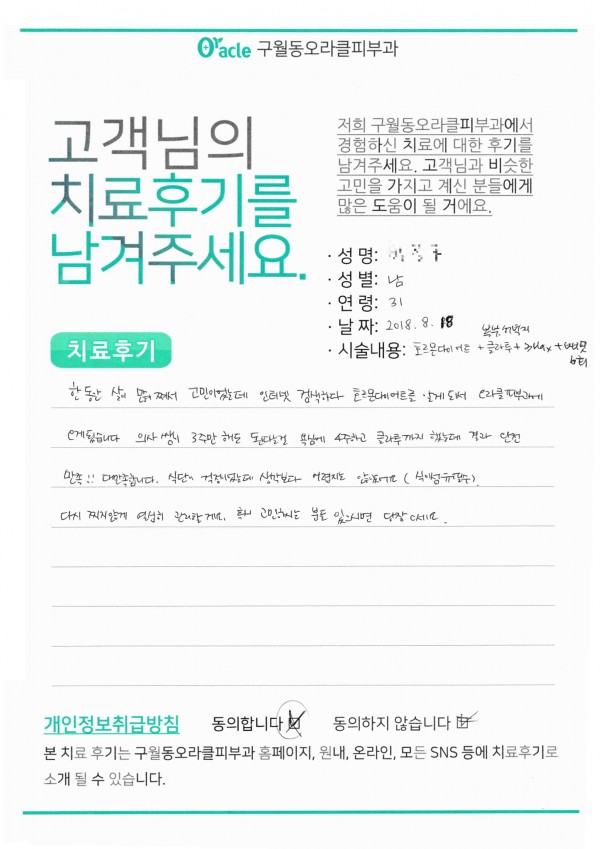 Oracle 구월동오라클피부과
고객님의
치료후기를
남겨주세요.
저희 구월동오라클피부과에서
경험하신 치료에 대한 후기를
남겨주세요. 고객님과 비슷한
고민을 가지고 계신 분들에게
많은 도움이 될 거에요.
· 성 명:
· 성 별: 남
· 연 령: 31
· 날 짜: 2018. 8. 18
복부, 허벅지
· 시술내용: 호르몬다이어트 + 클라투 +
6회
치료후기
한동안 살이 많이 쪄서 고민이었는데 인터넷 검색하다 호르몬다이어트를 알게되서 오라클피부과에
오게됬습니다 의사쌤이 3주만 해도 된다는걸 욕심에 4주하고 클라투까지 했는데 결과 완전
만족!! 대만족합니다. 식단이 걱정이었는데 생각보다 어렵지도 않았어요
다시 찌지않게 열심히 관리할게요. 혹시 고민하시는 분들 있으시면 당장 오세요.
개인정보취급방침 동의합니다 동의하지 않습니다
본 치료 후기는 구월동오라클피부과 홈페이지, 원내, 온라인, 모든 SNS 등에 치료후기로
소개 될 수 있습니다.